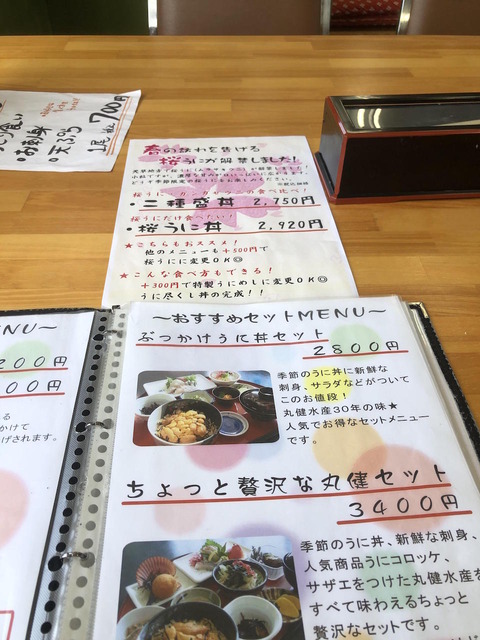 ・お刺身
・天ぷら
1尾 700円
春の訪れを告げる
桜うにが解禁しました!
二種盛丼 2,750円
桜うにだけ食べたい!
・桜うに丼 2,920円
★こちらもおススメ!
他のメニューも+500円で
桜うにに変更OK◎
★こんな食べ方もできる!
+300円で特製うにめしに変更OK◎
うに尽くし丼の完成!!
ENU~
200円
00円
る
かけて
げされます。
~おすすめセットMENU~
ぶっかけうに丼セット
2800円
季節のうに丼に新鮮な
刺身、サラダなどがついて
このお値段!
丸健水産30年の味★
人気でお得なセットメニュー
です。
ちょっと贅沢な丸健セット
3400円
季節のうに丼、新鮮な刺身、
人気商品うにコロッケ、
サザエをつけた丸健水産を
すべて味わえるちょっと
贅沢なセットです。